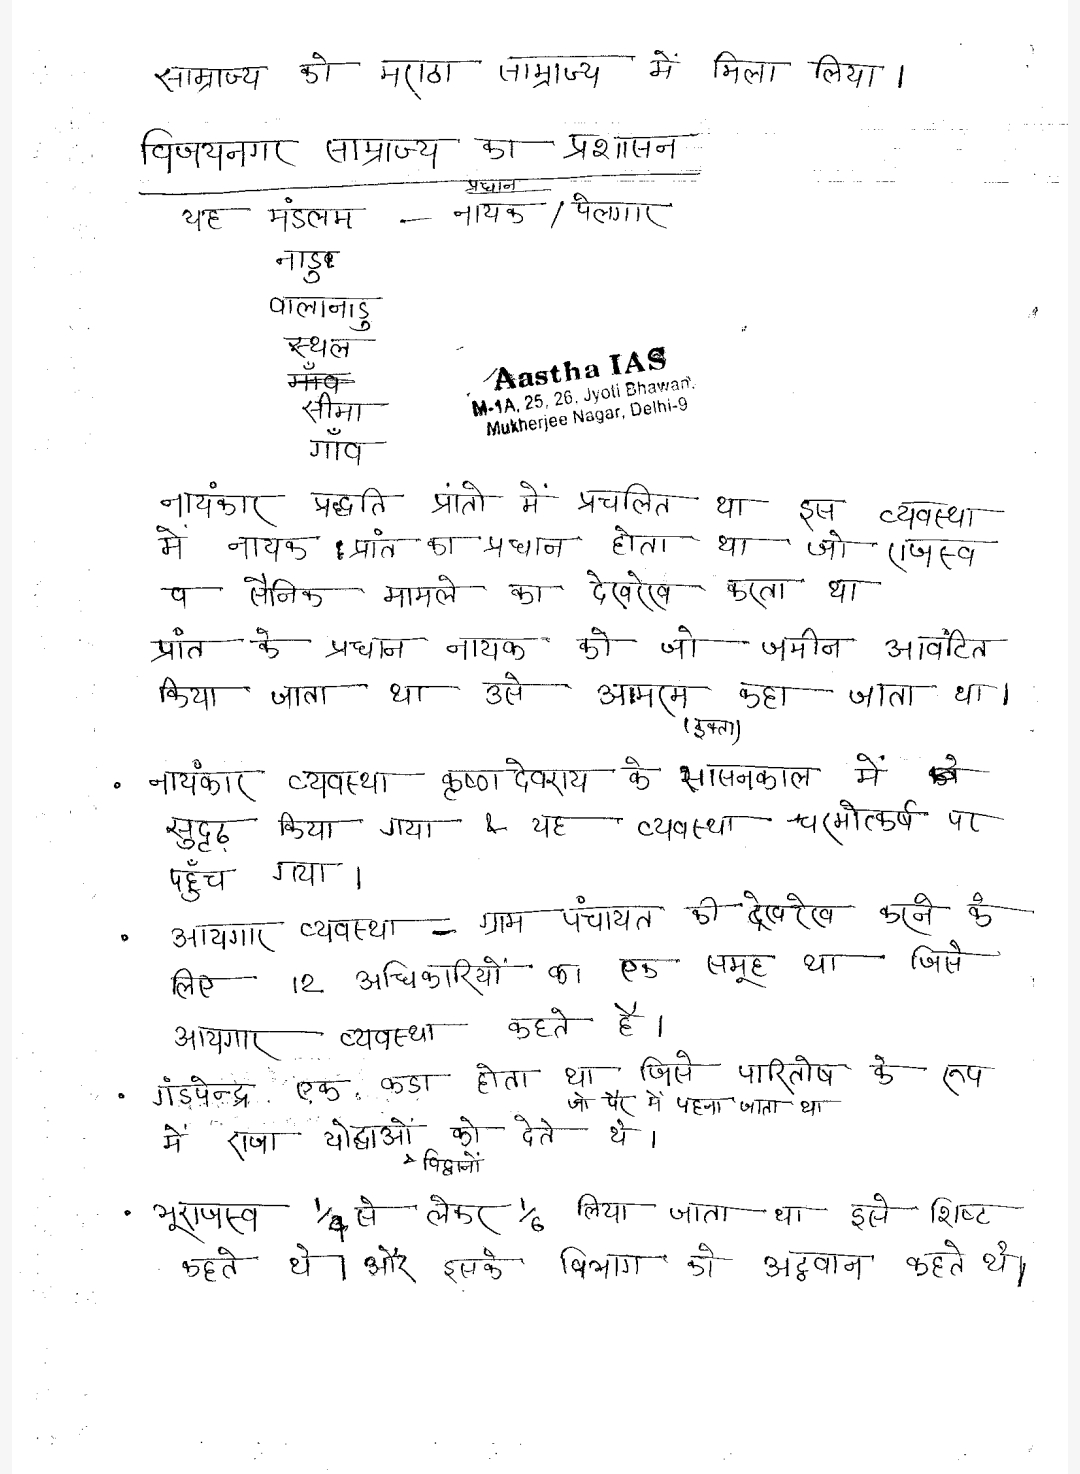 साम्राज्य को मराठा साम्राज्य में मिला लिया।
विजयनगर साम्राज्य का प्रशासन
प्रधान
यह मंडलम – नायक / पेलगार
नाडु
वालानाडु
स्थल
गाँव
सीमा
गाँव
Aastha IAS
M-1A, 25, 26, Jyoti Bhawan,
Mukherjee Nagar, Delhi-9
नायंकार प्रद्धति प्रांतो में प्रचलित था इस व्यवस्था
में नायक प्रांत का प्रधान होता था जो राजस्व
व सैनिक मामले का देखरेख करता था
प्रांत के प्रधान नायक को जो जमीन आवंटित
किया जाता था उसे आमरम कहा जाता था।
(इक्ता)
• नायंकार व्यवस्था कृष्णदेवराय के शासनकाल में
सुदृढ़ किया गया & यह व्यवस्था चरमोत्कर्ष पर
पहुँच गया।
• आयगार व्यवस्था = ग्राम पंचायत की देखरेख करने के
लिए 12 अधिकारियों का एक समूह था जिसे
आयगार व्यवस्था कहते है।
• गंडपेन्द्र एक कडा होता था जिसे पारितोष के रूप
जो पैर में पहना जाता था
में राजा योद्धाओं को देते थे।
विद्वानों
• भूराजस्व 1/4 से लेकर 1/6 लिया जाता था इसे शिष्ट
कहते थे। और इसके विभाग को अट्ठवान कहते थे।